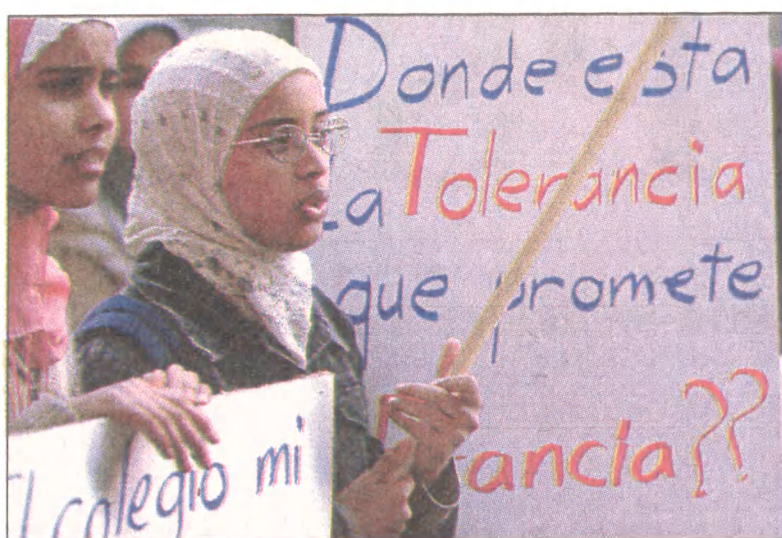 Donde esta
La Tolerancia
que promete
Francia??
El colegio mi